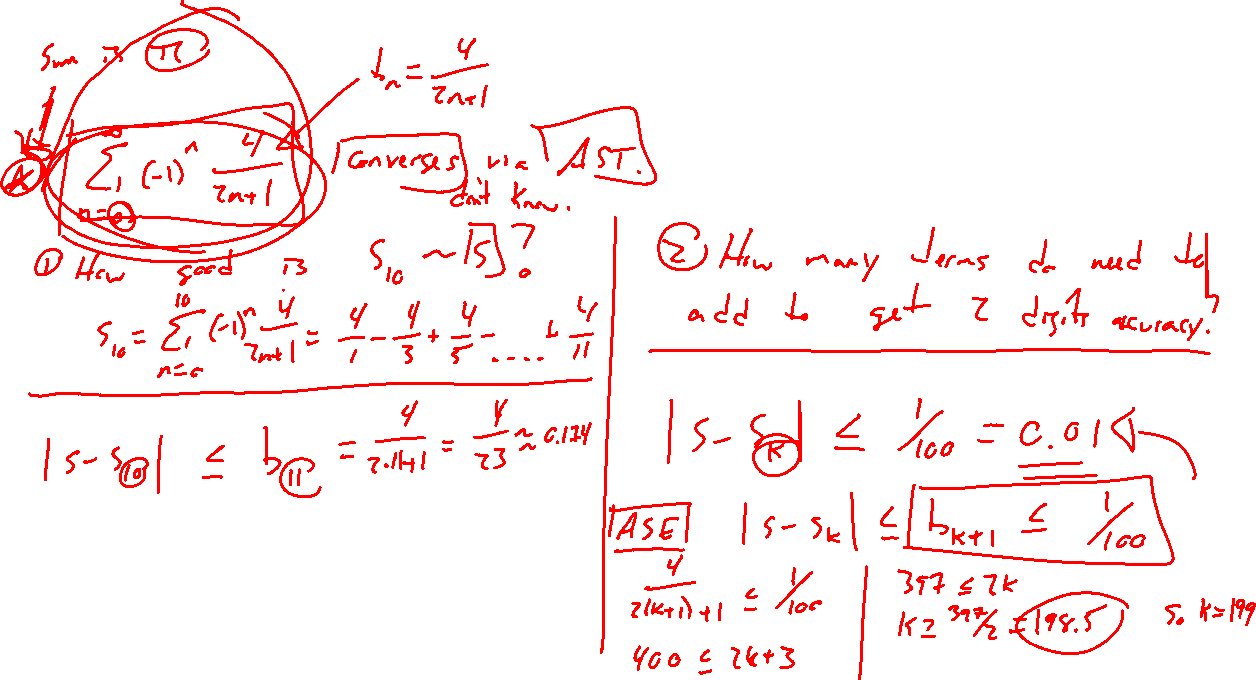 Sum is π
b_n = 4/(2n+1)
A ∑_{n=0}^{∞} (-1)^n 4/(2n+1) Converges via AST.
don't know.
① How good is S_10 ~ S?
S_10 = ∑_{n=0}^{10} (-1)^n 4/(2n+1) = 4/1 - 4/3 + 4/5 - .... + 4/11
|S - S_10| ≤ b_11 = 4/(2·11+1) = 4/23 ≈ 0.174
② How many terms do need to
add to get 2 digits accuracy?
|S - S_k| ≤ 1/100 = 0.01
ASE |S - S_k| ≤ b_{k+1} ≤ 1/100
4/(2(k+1)+1) ≤ 1/100
400 ≤ 2k+3
397 ≤ 2k
k ≥ 397/2 = 198.5 So k=199